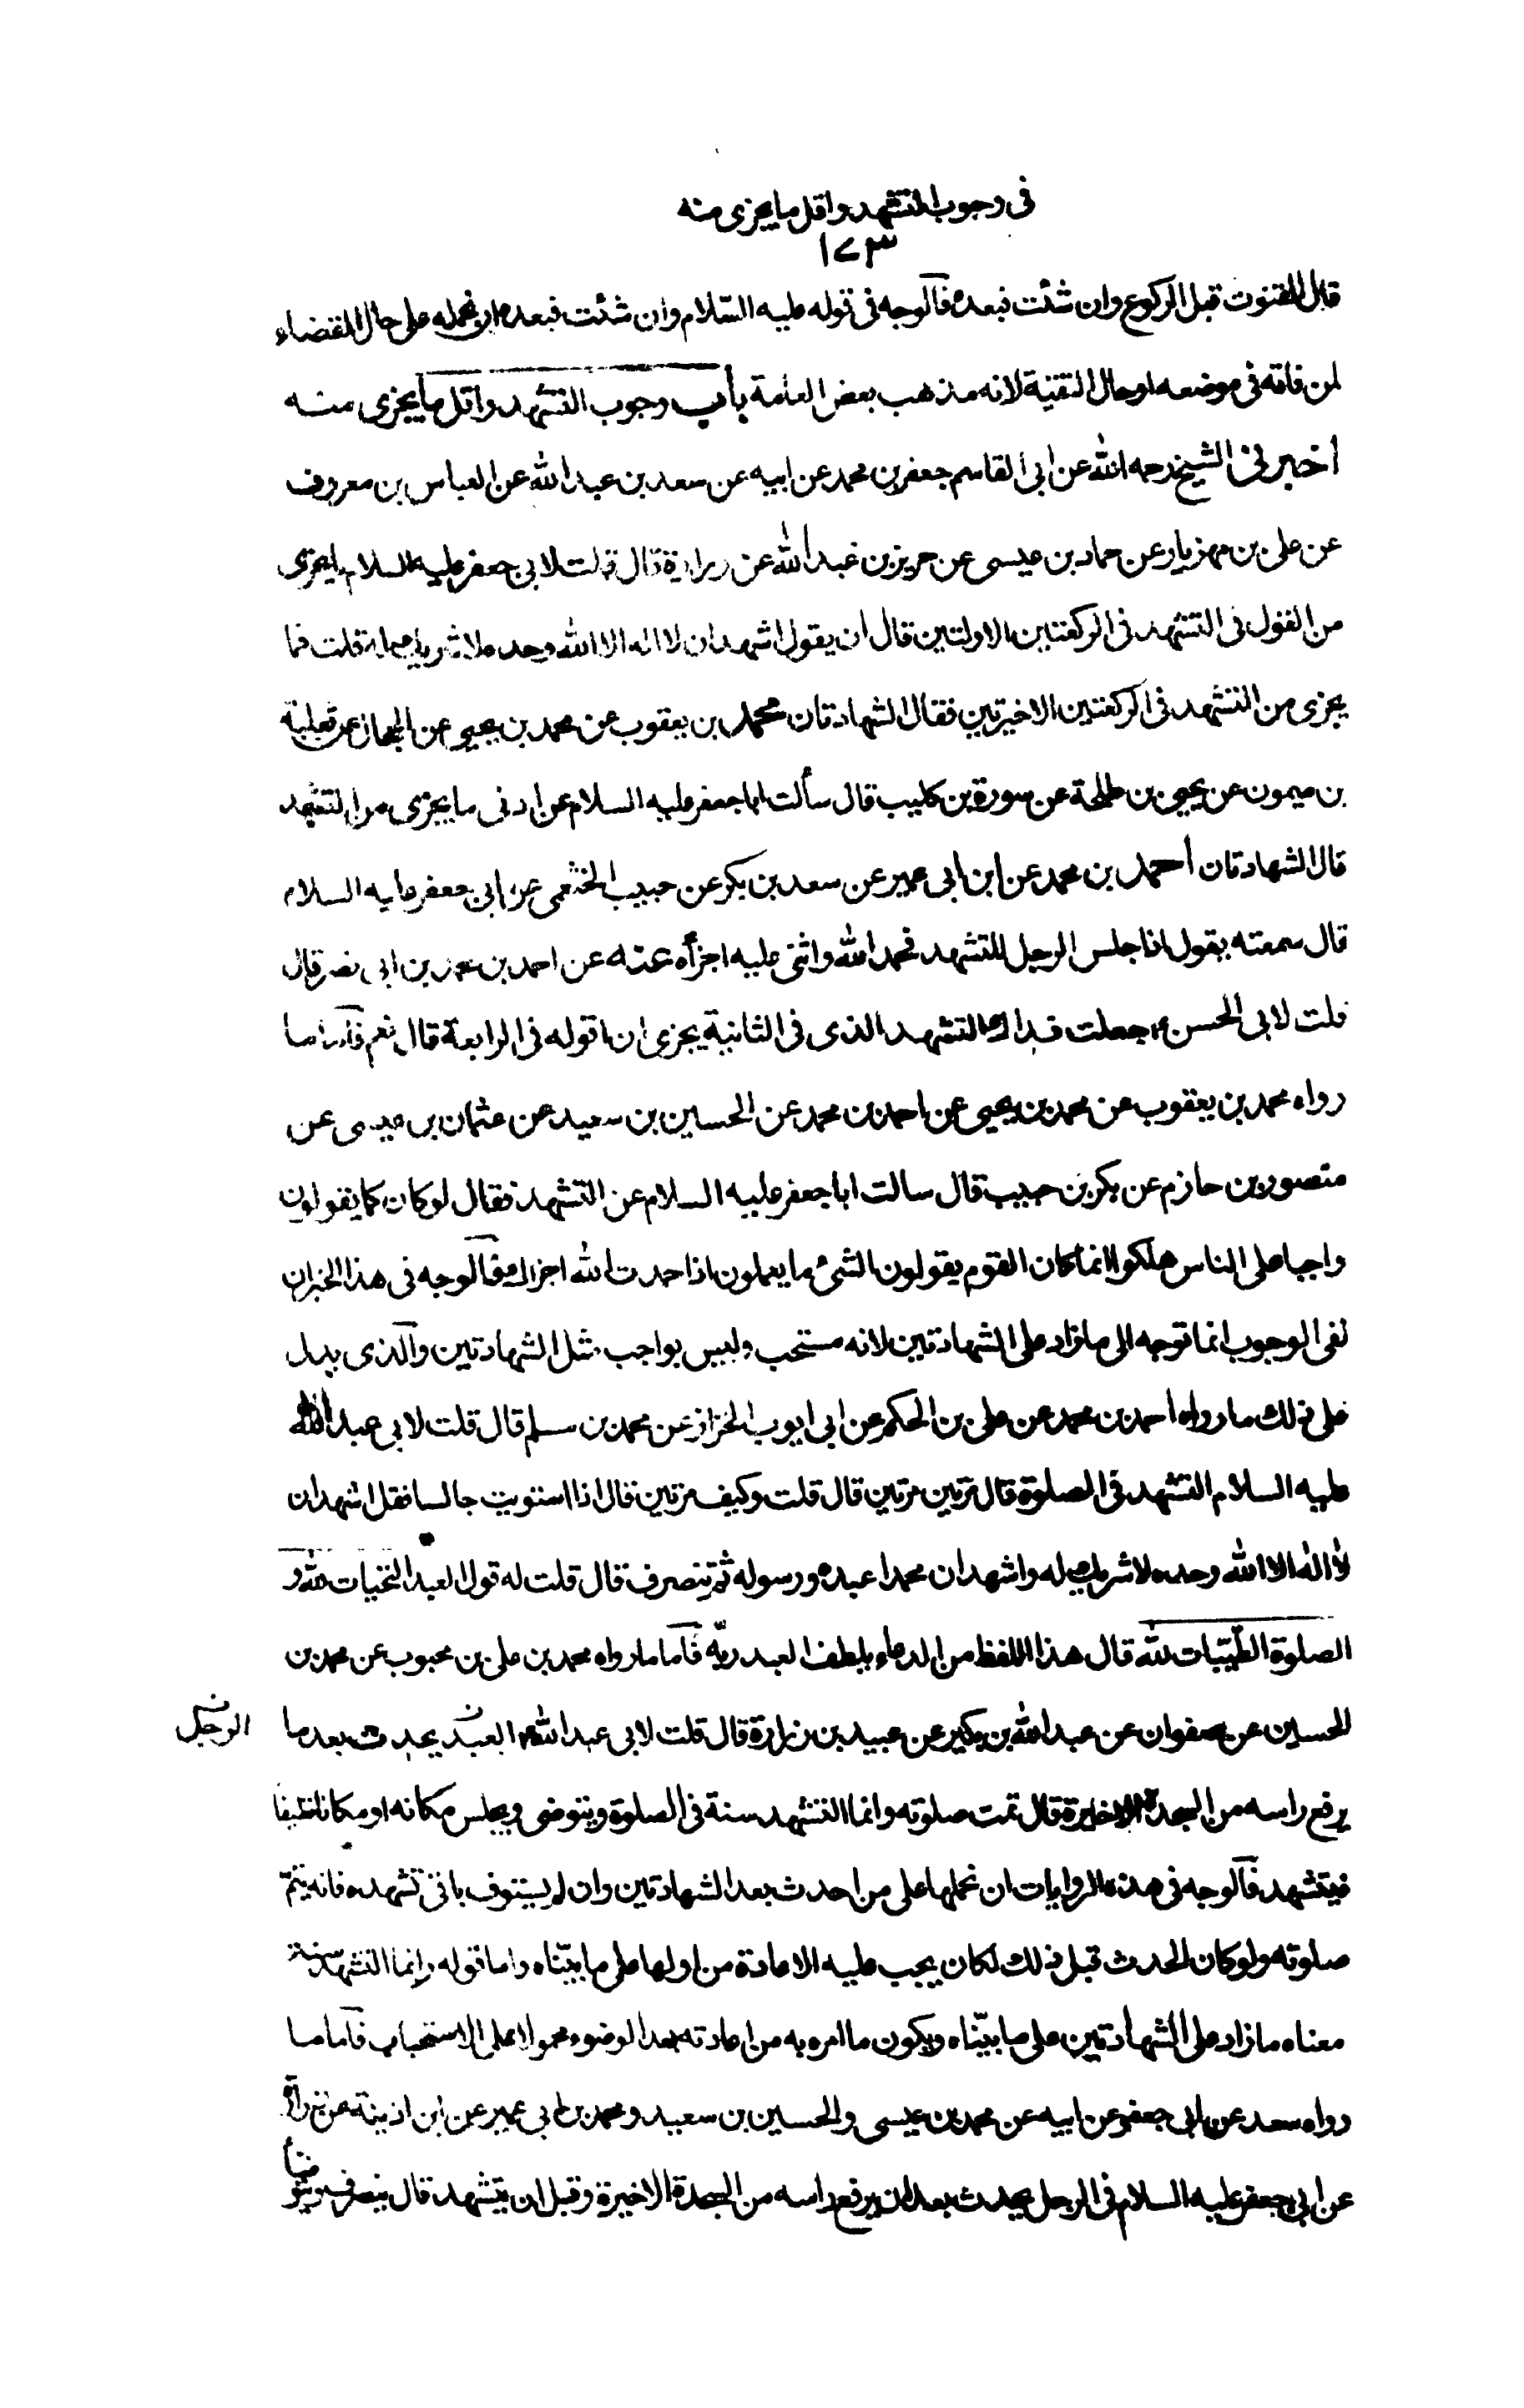 فى وجوب التشهد واقل ما يجزى منه
١٧٣
قال القنوت قبل الركوع وان شئت فبعده فالوجه فى قوله عليه السّلام وان شئت فبعده ان نحمله على حال القضاء
لمن فاته فى موضعه او حال التقية لانه مذهب بعض العامة باب وجوب التشهد واقل ما يجزى منه
اخبرنى الشيخ رحمه الله عن ابى القاسم جعفر بن محمد عن ابيه عن سعد بن عبد الله عن العباس بن معروف
عن على بن مهزيار عن حماد بن عيسى عن حريز بن عبد الله عن زرارة قال قلت لابى جعفر عليه السلام ما يجزى
من القول فى التشهد فى الركعتين الاولتين قال ان يقول اشهد ان لا اله الا الله وحده لا شريك له قلت فما
يجزى من التشهد فى الركعتين الاخيرتين فقال الشهادتان محمد بن يعقوب عن محمد بن يحيى عن الحجال عن ثعلبة
بن ميمون عن يحيى بن طلحة عن سورة بن كليب قال سألت ابا جعفر عليه السلام عن ادنى ما يجزى من التشهد
قال الشهادتان احمد بن محمد عن ابن ابى عمير عن سعد بن بكر عن حبيب الخثعمى عن ابى جعفر عليه السلام
قال سمعته يقول اذا جلس الرجل للتشهد فحمد الله واثنى عليه اجزأه عنه عن احمد بن محمد بن ابى نصر قال
قلت لابى الحسن ع جعلت فداك التشهد الذى فى الثانية يجزى ان اقوله فى الرابعة قال نعم فاما ما
رواه محمد بن يعقوب عن محمد بن يحيى عن احمد بن محمد عن الحسين بن سعيد عن عثمان بن عيسى عن
منصور بن حازم عن بكر بن حبيب قال سالت ابا جعفر عليه السلام عن التشهد فقال لو كان كما يقولون
واجبا على الناس هلكوا انما كان القوم يقولون الشئ ما يعلمون اذا حمدت الله اجزاك فالوجه فى هذا الخبر ان
نفى الوجوب انما توجه الى ما زاد على الشهادتين لانه مستحب وليس بواجب مثل الشهادتين والذى يدل
على ذلك ما رواه احمد بن محمد عن على بن الحكم عن ابى ايوب الخزاز عن محمد بن مسلم قال قلت لابى عبد الله
عليه السلام التشهد فى الصلوة قال مرتين مرتين قال قلت وكيف مرتين قال اذا استويت جالسا فقل اشهد ان
لا اله الا الله وحده لا شريك له واشهد ان محمدا عبده ورسوله ثم تنصرف قال قلت له قول العبد التحيات لله و
الصلوة الطيّبات لله قال هذا اللفظ من الدعاء يلطف العبد ربّه فاما ما رواه محمد بن على بن محبوب عن محمد بن
الحسين عن صفوان عن عبد الله بن بكير عن عبيد بن زرارة قال قلت لابى عبد الله ع العبد يحدث بعد ما
الرجل ن
يرفع راسه من السجدة الاخيرة قال تمت صلوته وانما التشهد سنة فى الصلوة ويتوضى ويجلس مكانه او مكانا نظيفا
فيتشهد فالوجه فى هذه الروايات ان نحملها على من احدث بعد الشهادتين وان لم يستوف باقى تشهده فانه يتمّ
صلوته ولو كان الحدث قبل ذلك لكان يجب عليه الاعادة من اولها على ما بيّناه واما قوله وانما التشهد سنة
معناه ما زاد على الشهادتين على ما بيّناه ويكون ما امره به من اعادته بعد الوضوء محمولا على الاستحباب فاما ما
رواه سعد عن ابى جعفر عن ابيه عن محمد بن عيسى والحسين بن سعيد ومحمد بن ابى عمير عن ابن اذينة عن زرارة
عن ابى جعفر عليه السلام فى الرجل يحدث بعد ان يرفع راسه من السجدة الاخيرة وقبل ان يتشهد قال ينصرف ويتوضأ